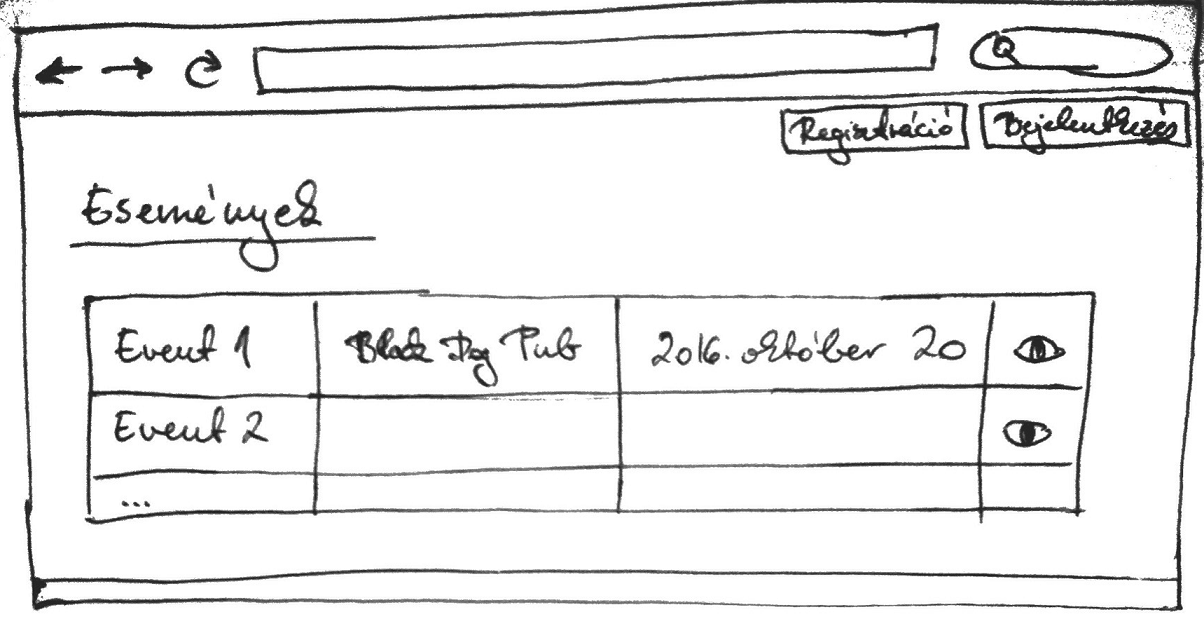 Regisztráció Bejelentkezés
Események
Event 1 Black Dog Pub 2016. október 20
Event 2
...